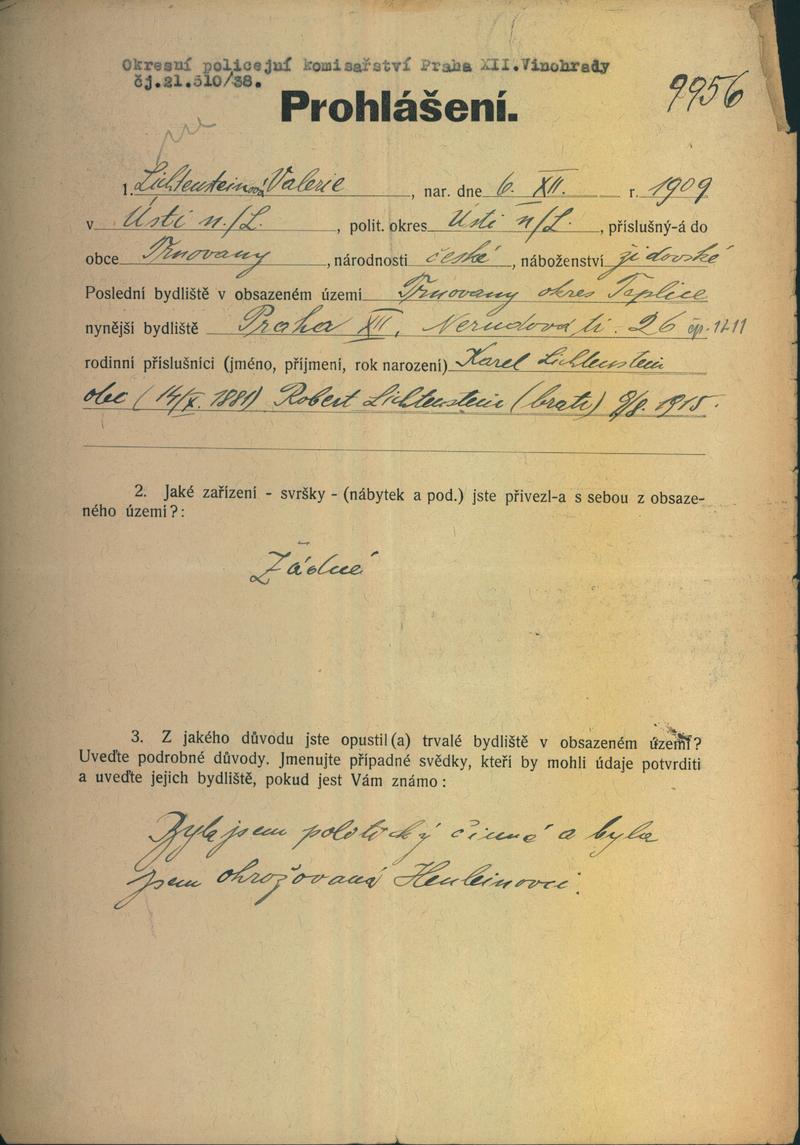 Okresní policejní komisařství Praha XII.Vinohrady
čj.21.510/38.
9956
Prohlášení.
1. Lichtensteinová Valerie, nar. dne 6. XII. r. 1909
v Ústí n./L., polit. okres Ústí n/L., příslušný-á do
obce Trnovany, národnosti české, náboženství židovské
Poslední bydliště v obsazeném území Trnovany okres Teplice
nynější bydliště Praha XII, Nerudova tř. 26 čp. 1211
rodinní příslušníci (jméno, příjmení, rok narození) Karel Lichtenstein
otec (14/X. 1881) Robert Lichtenstein (bratr) 9/8. 1915.
2. Jaké zařízení - svršky - (nábytek a pod.) jste přivezl-a s sebou z obsaze-
ného území?:
Žádné
3. Z jakého důvodu jste opustil(a) trvalé bydliště v obsazeném území?
Uveďte podrobné důvody. Jmenujte případné svědky, kteří by mohli údaje potvrditi
a uveďte jejich bydliště, pokud jest Vám známo:
Byla jsem politický činná a byla
jsem ohrožovaná Henleinovci.